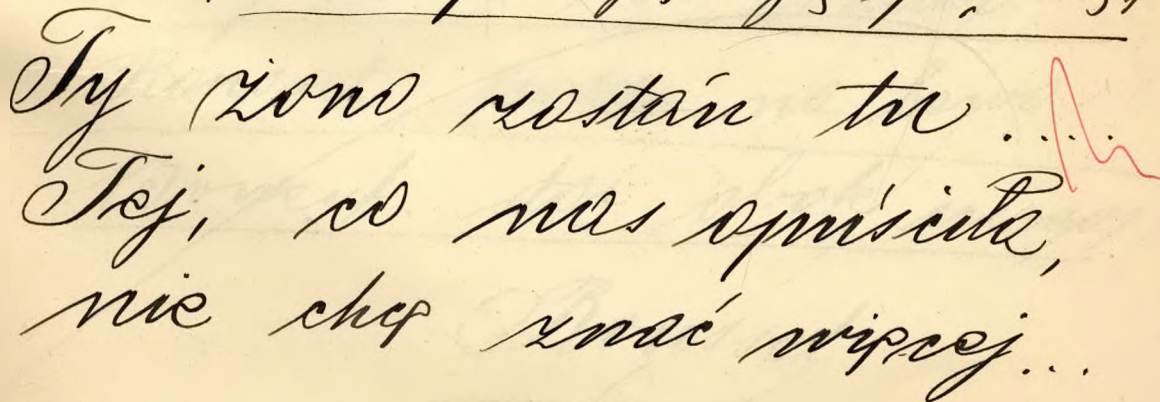 Ty żono zostań tu.....
Tej, co nas opuściła,
nie chcę znać więcej...